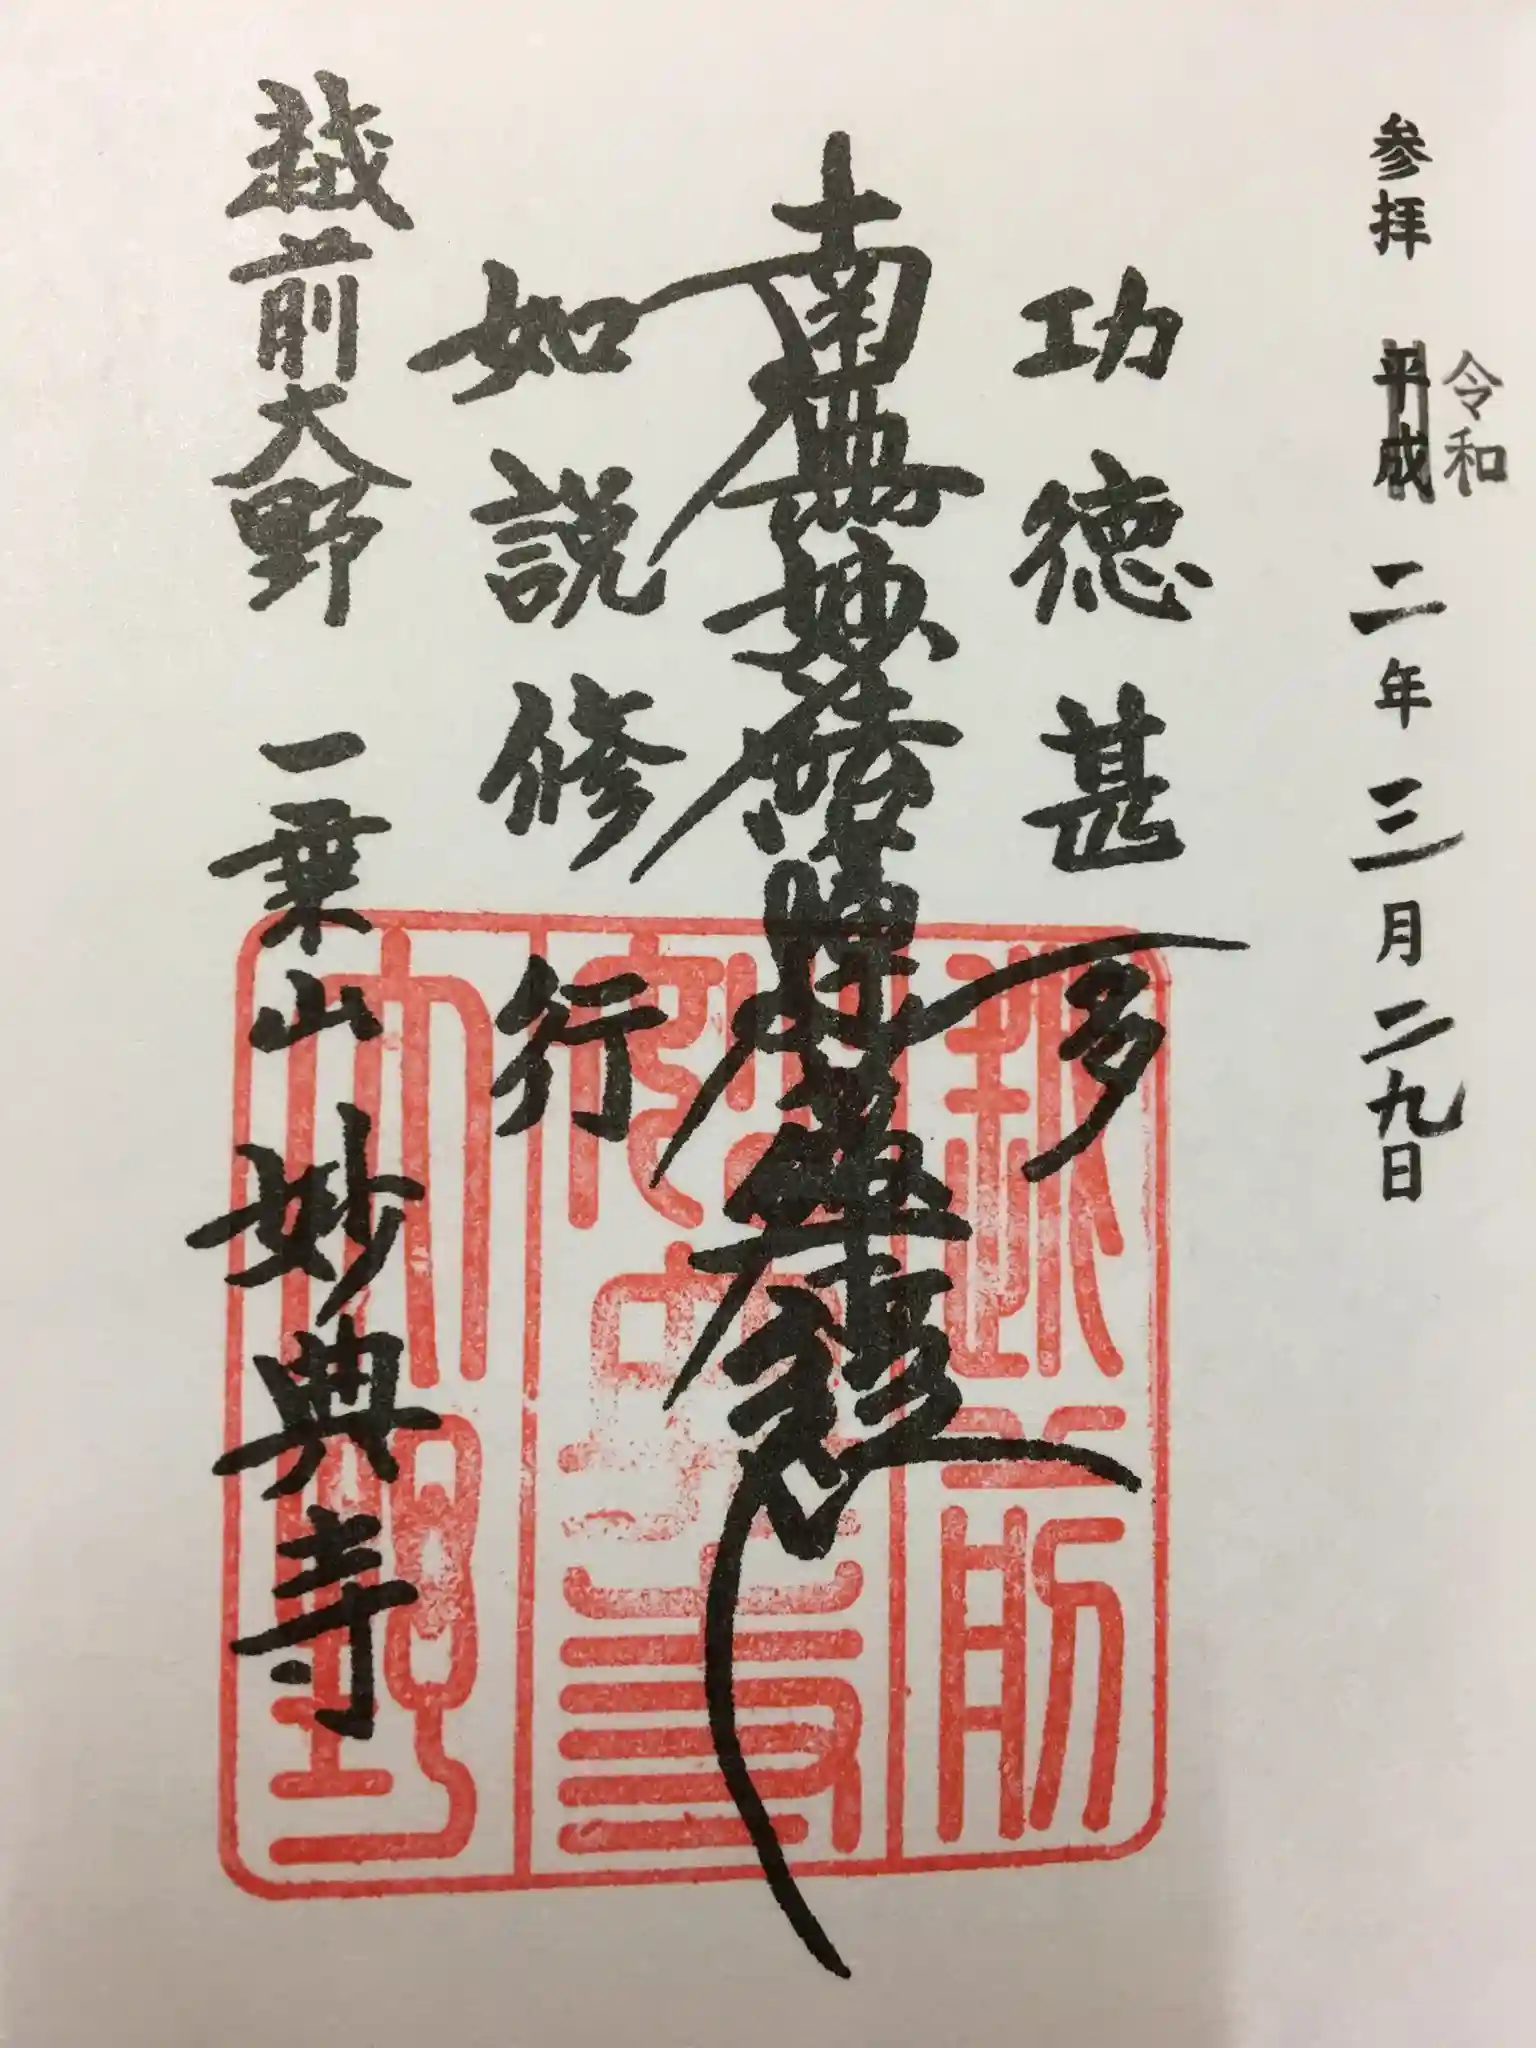 参拝 平成 二年 三月 二九日
令和
功徳甚多
南無妙法蓮華経
如説修行
越前大野 一乗山 妙典寺